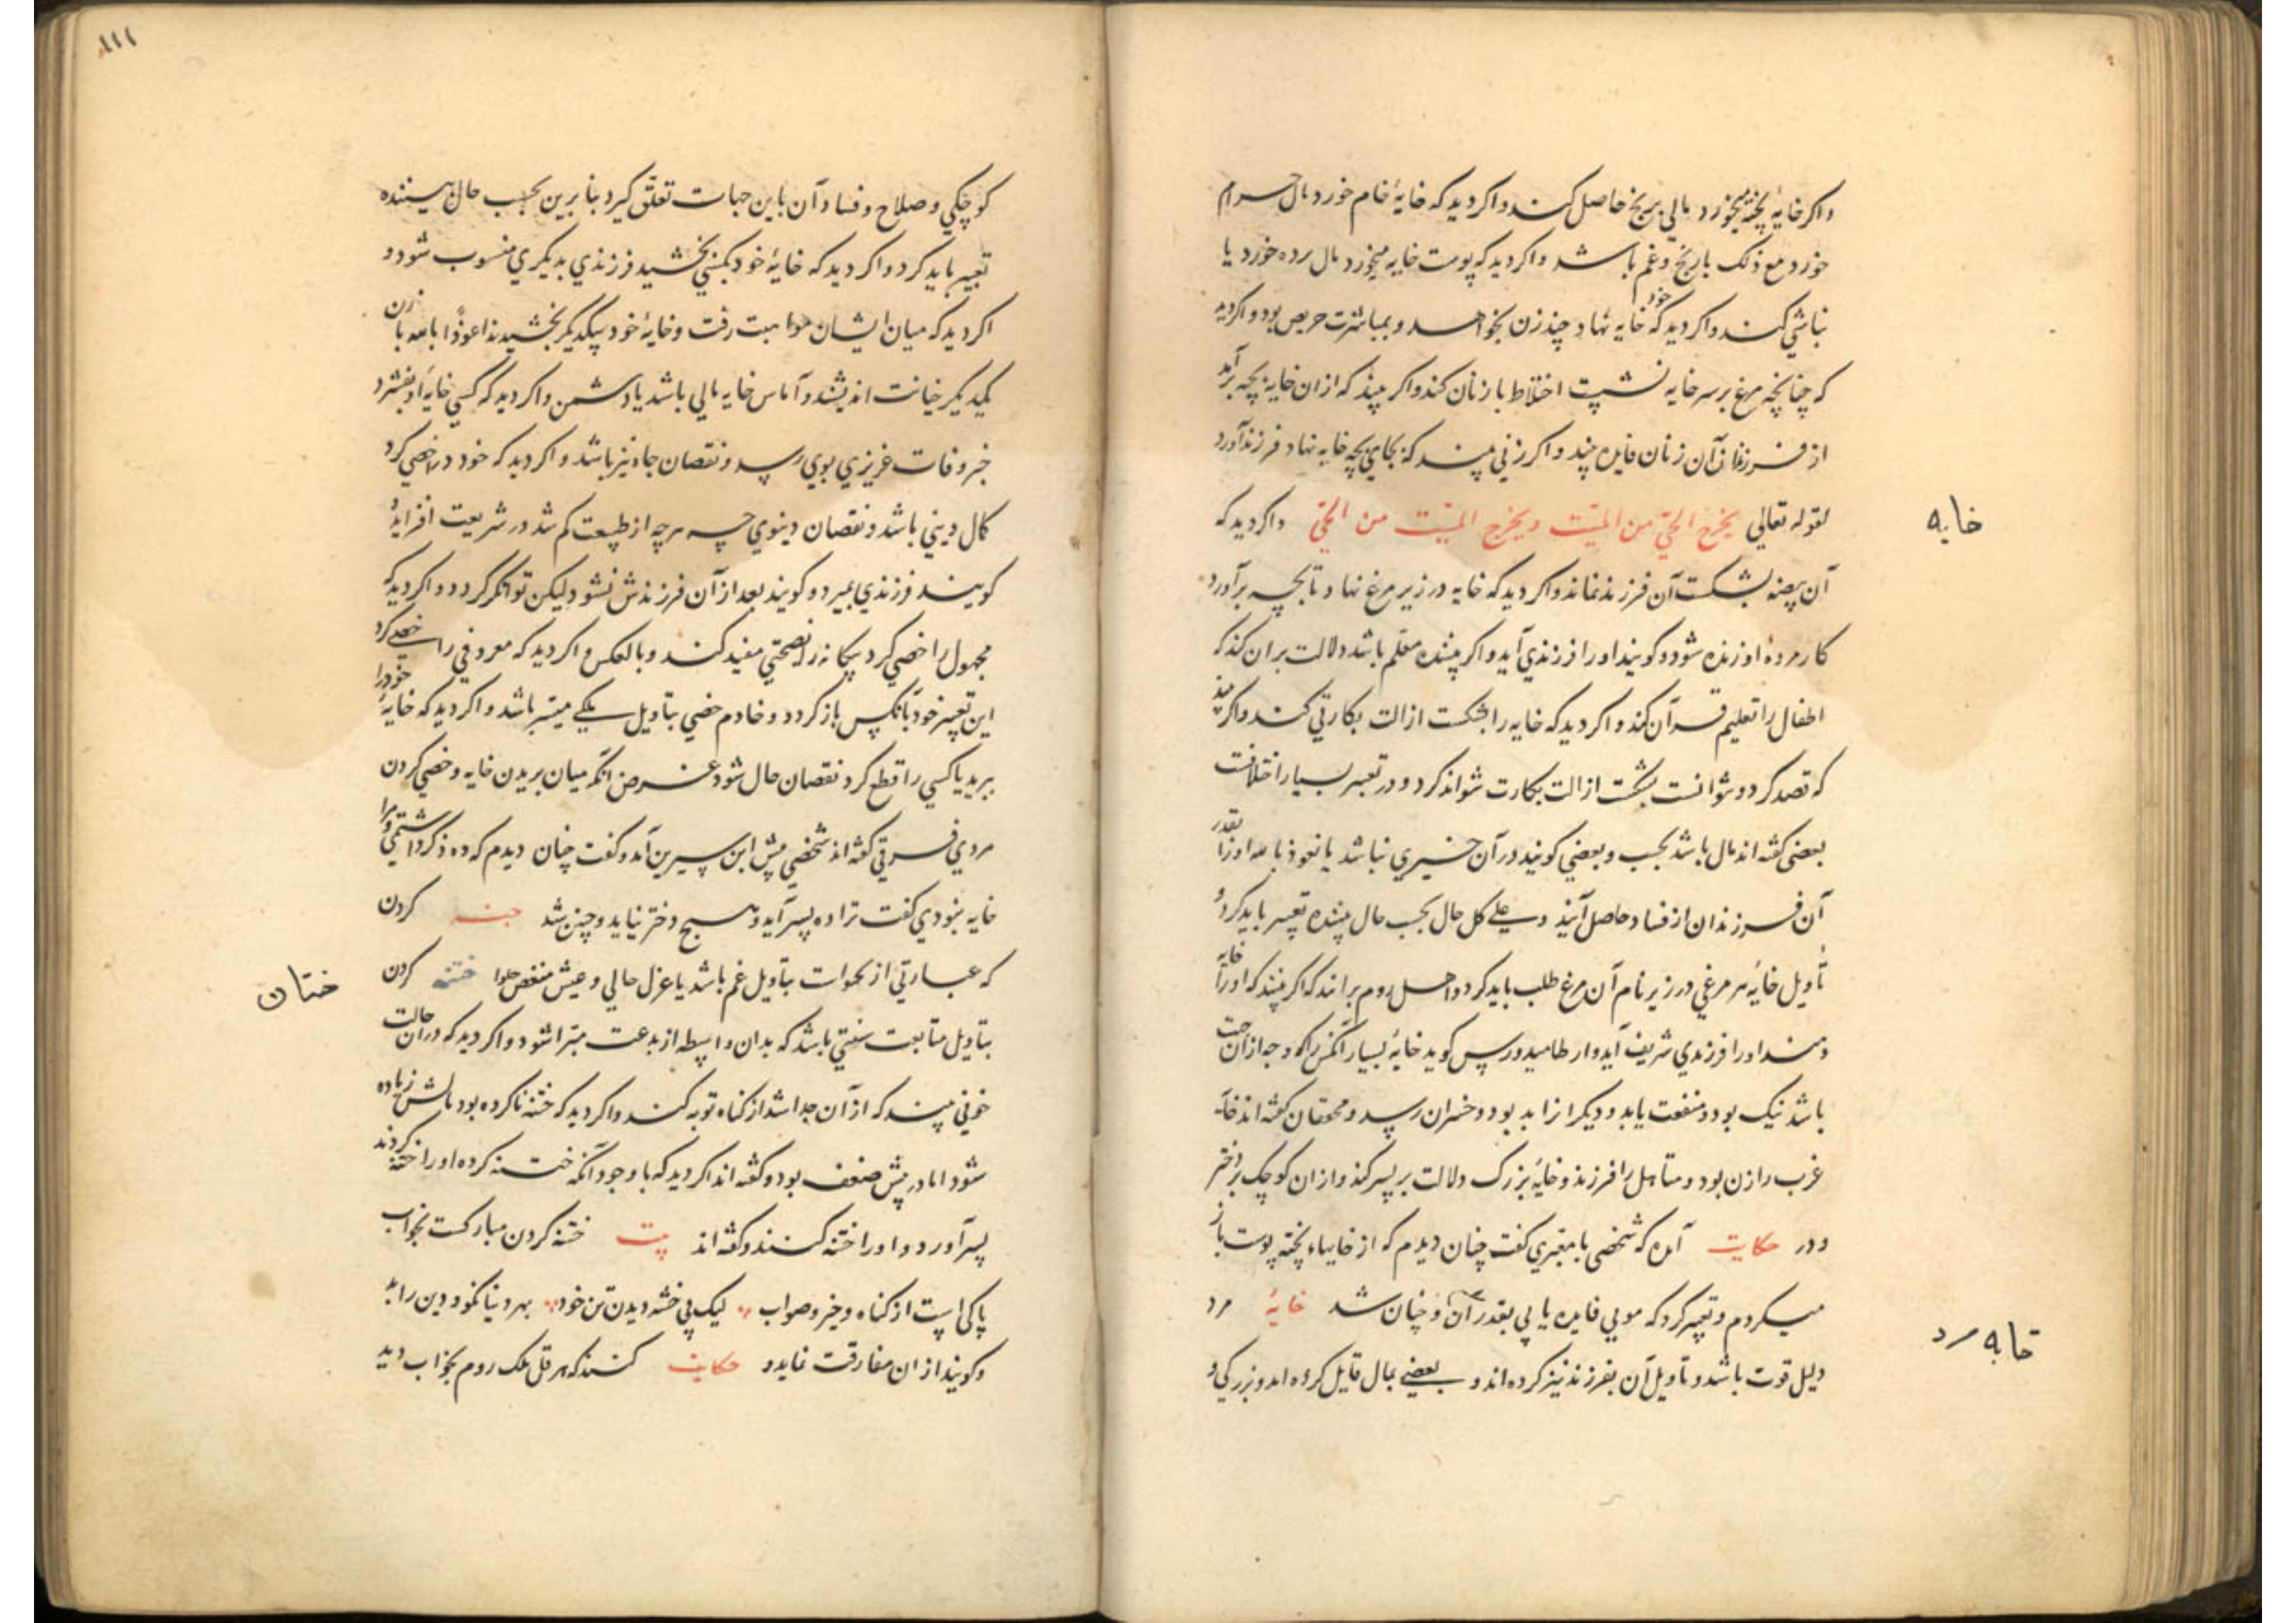 واکر خایهٔ پخته میخورد مالی برنج حاصل کند و اکر دید که خایهٔ خام خورد مال حرام
خورد مع ذلک با رنج و غم باشد و اکر دید که پوست خایه میخورد مال مرده خورد یا
نباشی کند و اکر دید که خود خایه نهاد چند زن بخواهد و بمباشرت حریص بود و اکر دید
که چنانچه مرغ بر سر خایه نشست اختلاط با زنان کند و اکر بیند که از ان خایه بچه برآمد
از فرزندان آن زنان فایده بیند و اکر زنی بیند که بجای بچه خایه نهاد فرزند آورد
خایه
لقوله تعالی یخرج الحیّ من المیّت و یخرج المیّت من الحیّ و اکر دید که
آن بیضه بشکست آن فرزند نماند و اکر دید که خایه در زیر مرغ نهاد تا بچه برآورد
کار مردهٔ او زنده شود و کویند او را فرزندی آید و اکر بیننده معلّم باشد دلالت بران کند که
اطفال را تعلیم قرآن کند و اکر دید که خایه را شکست ازالت بکارتی کند و اکر بیند
که قصد کرد و نتوانست شکست ازالت بکارت نتواند کرد و در تعبیر بسیار اختلافست
بعضی کفته اند مال باشد بحسب و بعضی کویند در آن خیری نباشد یا نعوذ بالله اولاد
آن فرزندان از فساد حاصل آیند و علی کل حال بحسب حال بیننده تعبیر باید کرد و
تأویل خایهٔ هر مرغی در زیر نام آن مرغ طلب باید کرد و اهل روم برانند که اکر بیند که او را خایه
دهند او را فرزندی شریف آید و ارطامیدورس کوید خایهٔ بسیار آنکس را که وجه از آن جهت
باشد نیک بود و منفعت یابد و دیکر از ابد بود و خسران رسد و محققان کفته اند خایه
عزب را زن بود و متأهل را فرزند و خایهٔ بزرک دلالت بر پسر کند و از ان کوچک بر دختر
و در حکایت آمده که شخصی با معبّری کفت چنان دیدم که از خایهاء پخته پوست باز
میکردم و تعبیر کرد که مویی فایده یابی بقدر آن و چنان شد خایهٔ مرد
خایه مرد
دلیل قوت باشد و تأویل آن بفرزند نیز کرده اند و بعضی بمال قایل کرده اند و بزرکی و
۱۱۱
کوچکی و صلاح و فساد آن باین جهات تعلّق کیرد بنابرین بحسب حال بیننده
تعبیر باید کرد و اکر دید که خایهٔ خود بکسی بخشید فرزندی بدیکری منسوب شود و
اکر دید که میان ایشان مواهبت رفت و خایهٔ خود بیکدیکر بخشیدند اعوذ بالله با زن
یکدیکر خیانت اندیشند و آماس خایه مالی باشد یا دشمن و اکر دید که کسی خایهٔ او بفشرد
خبر وفات عزیزی بوی رسد و نقصان جاه نیز باشد و اکر دید که خود را خصی کرد
کمال دینی باشد و نقصان دینوی چه هر چه از طبیعت کم شد در شریعت افزاید و
کویند فرزندی بمیرد و کویند بعد از آن فرزندش نشود لیکن توانکر کردد و اکر دید که
مجهول را خصی کرد بیکانه را نصحتی مفید کند و بالعکس و اکر دید که معروفی را خصی کرد
این تعبیر خود بآنکس باز کردد و خادم خصی بتأویل یکی میسّر باشد و اکر دید که خایهٔ خود را
ببرید یا کسی را قطع کرد نقصان حال شود غرض آنکه میان بریدن خایه و خصی کردن
مردی فرقی کفته اند شخصی پیش ابن سیرین آمد و کفت چنان دیدم که ده ذکر داشتمی و مرا
خایه نبودی کفت ترا ده پسر آید و هیچ دختر نیاید و چنین شد ختنه کردن
که عبارتی از بتأویل غم باشد یا عزل حالی و عیش منغص ختنه کردن
ختان
بتأویل متابعت سنتی باشد که بدان واسطه از بدعت مبرّا شود و اکر دید که در ان حالت
خونی بیند که از آن جدا شد از کناه توبه کند و اکر دید که ختنه ناکرده بود مالش زیاده
شود اما در دینش ضعف بود و کفته اند اکر دید که با وجود آنکه ختنه کرده او را ختنه کردند
پسر آورد و او را ختنه کنند و کفته اند بیت ختنه کردن مبارکست بخواب
پاکی است از کناه و خیر و صواب لیک بی ختنه دیدن تن خود بهر دنیا نکو و دین را بد
و کویند از ان مفارقت نماید و حکایت کنند که هرقل ملک روم بخواب دید